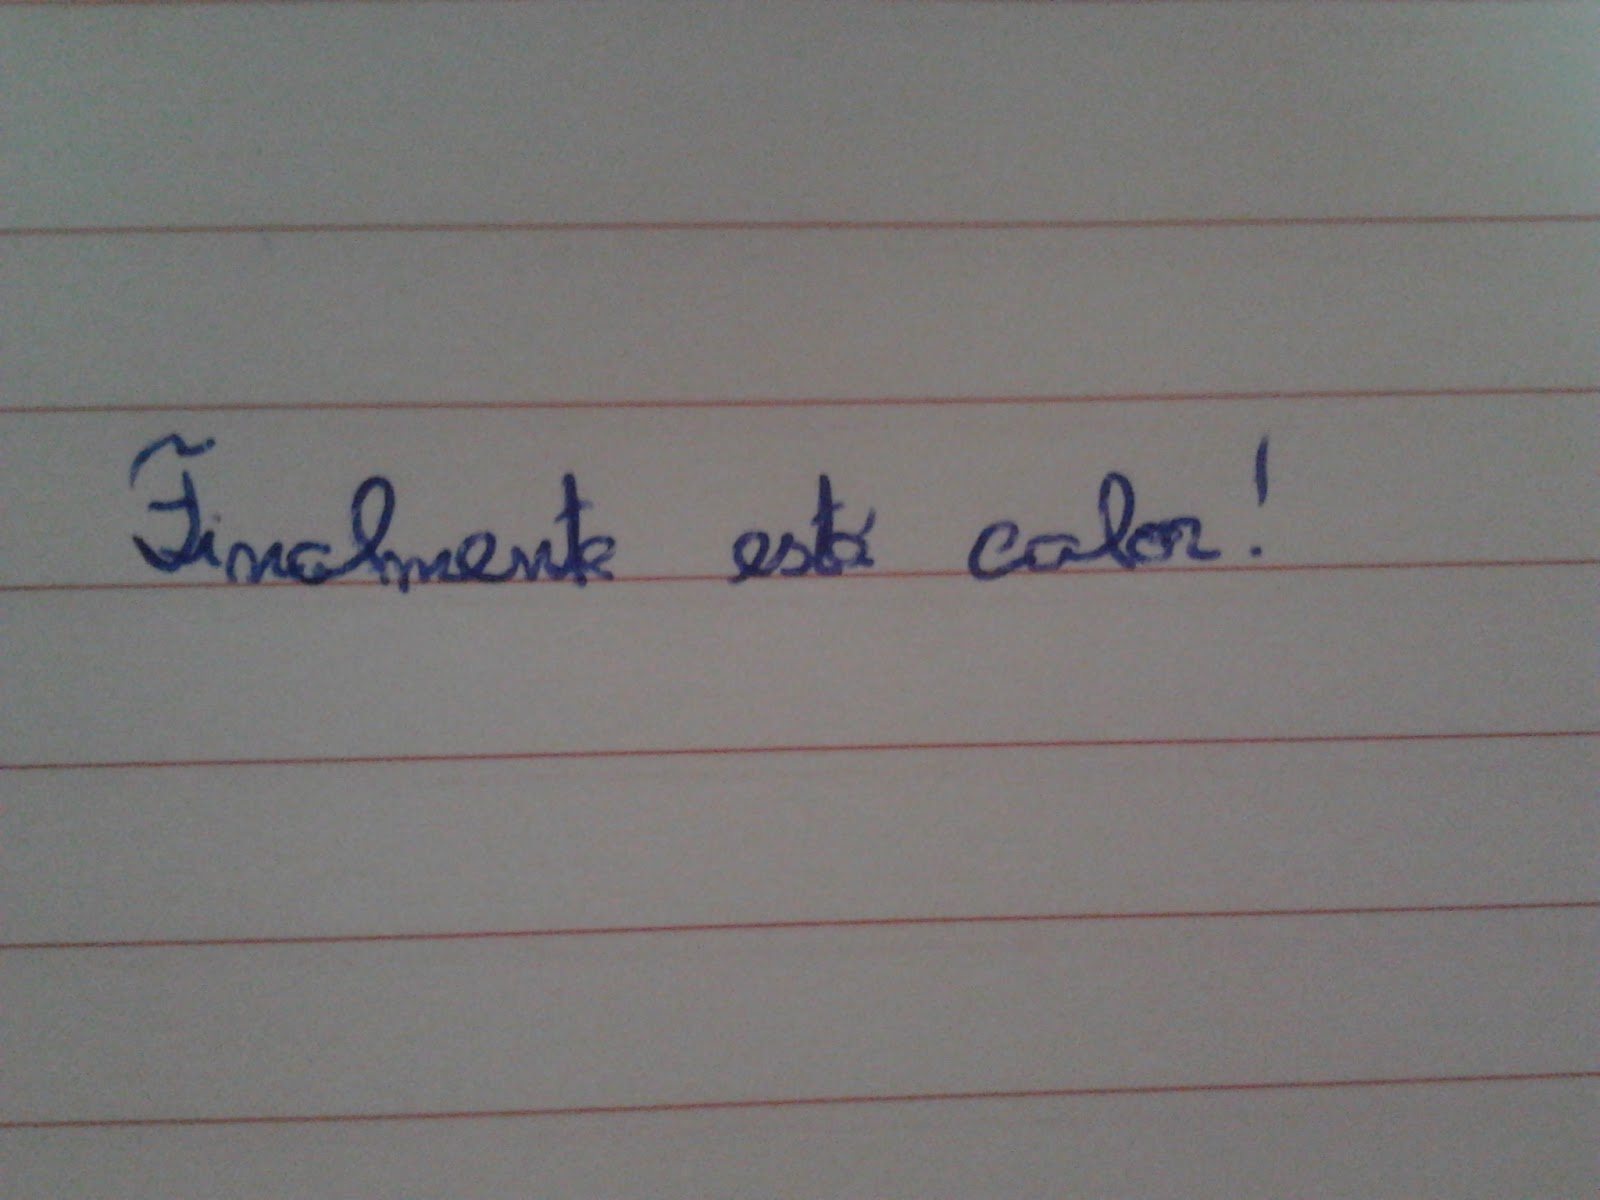 Finalmente está calor!